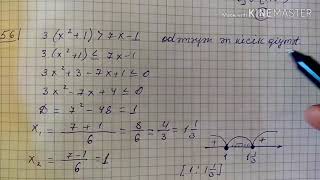 Made with
KINEMASTER
56)
3(x²+1) > 7x-1
3(x²+1) ≤ 7x-1
3x²+3-7x+1 ≤ 0
3x²-7x+4 ≤ 0
D = 7²-48 = 1
x₁ = (7+1)/6 = 8/6 = 4/3 = 1 1/3
x₂ = (7-1)/6 = 1
+ - +
1 1 1/3
[1; 1 1/3]